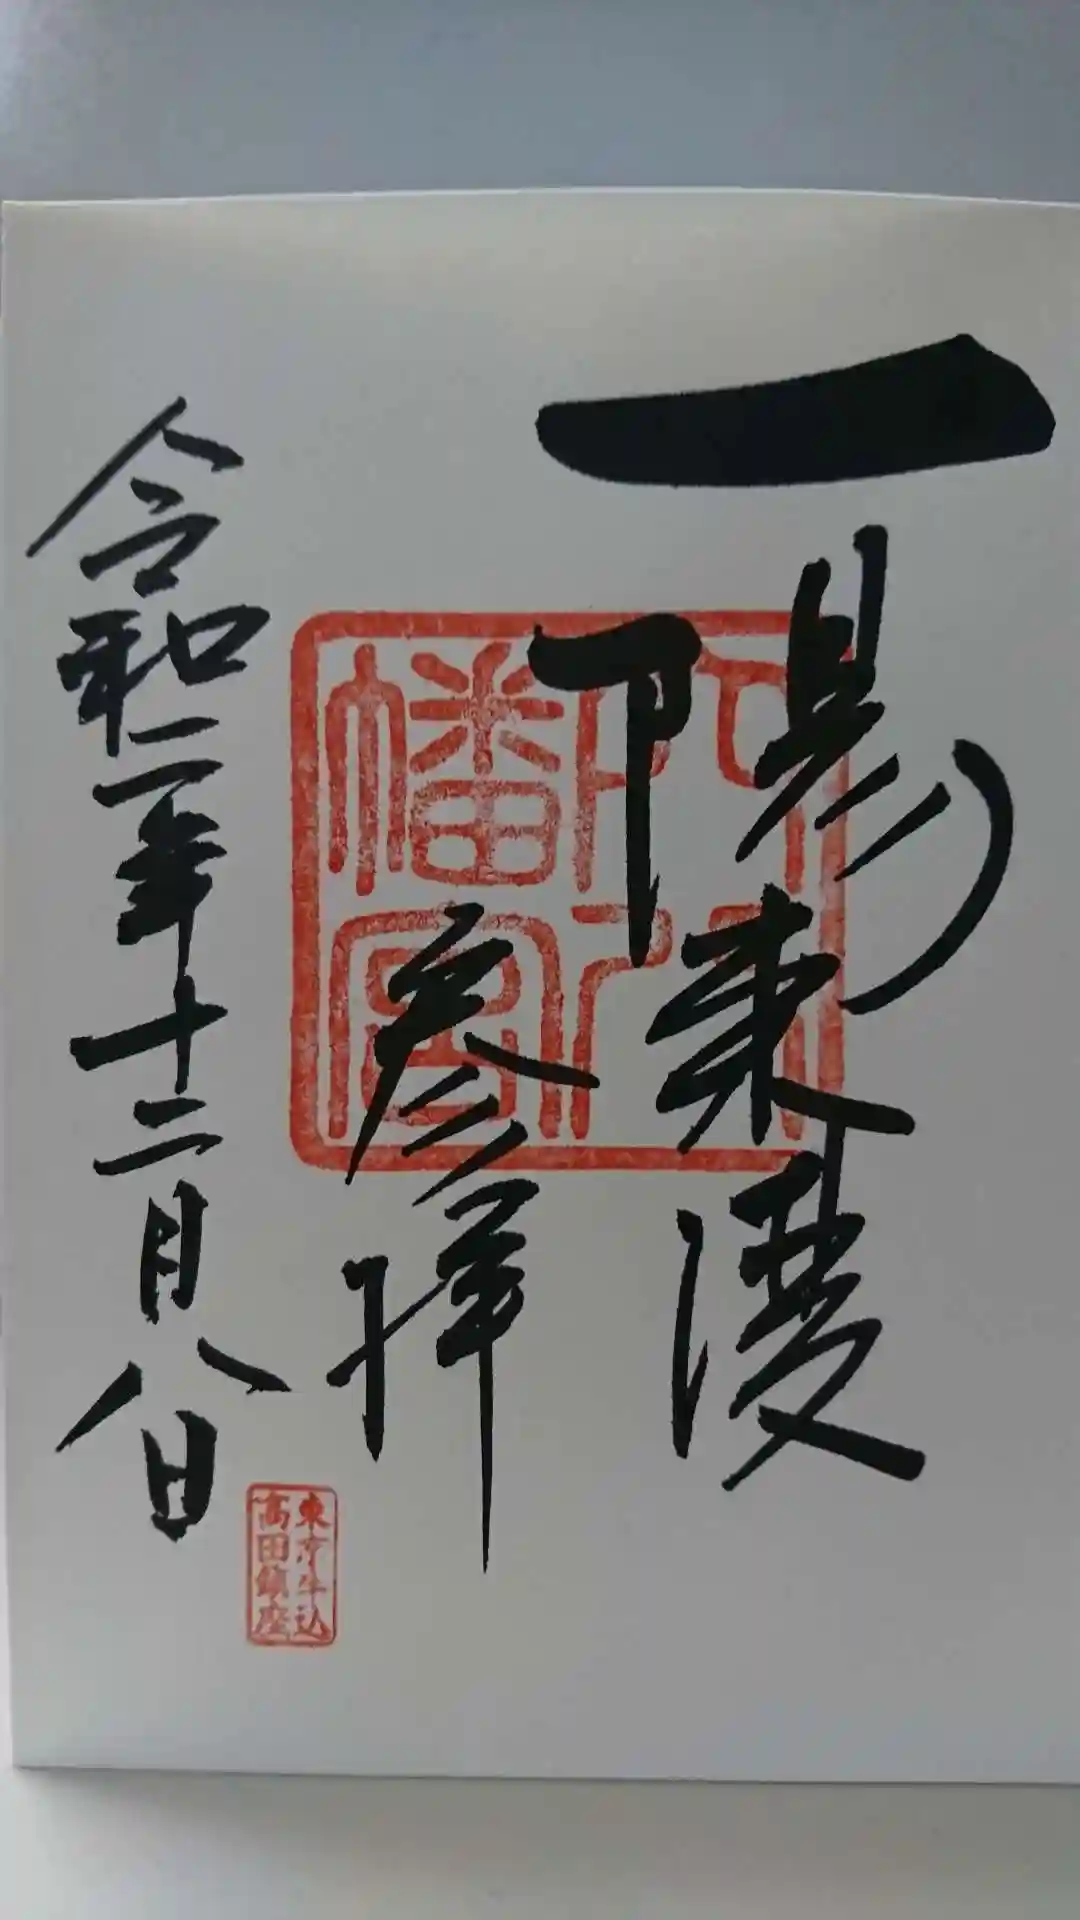 一陽来復
参拝
令和二年十二月八日
阿部八
幡宮
東京牛込
高田鎮座